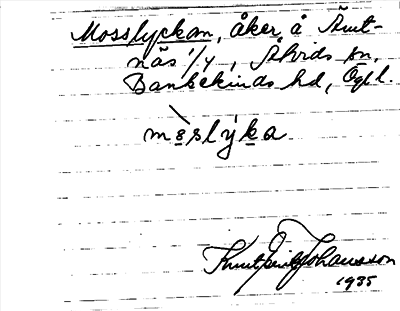 Mosslyckan, åker å Ämt-
näs 1/4, Åtvids sn,
Bankekinds hd, Ögl.
mɵslýka
Knut Emil Johansson
1935